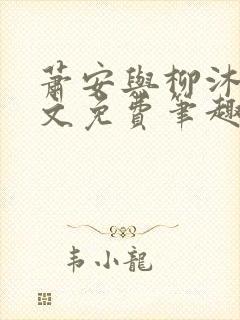 蕭安與柳沐
文免費筆趣
韋小龍